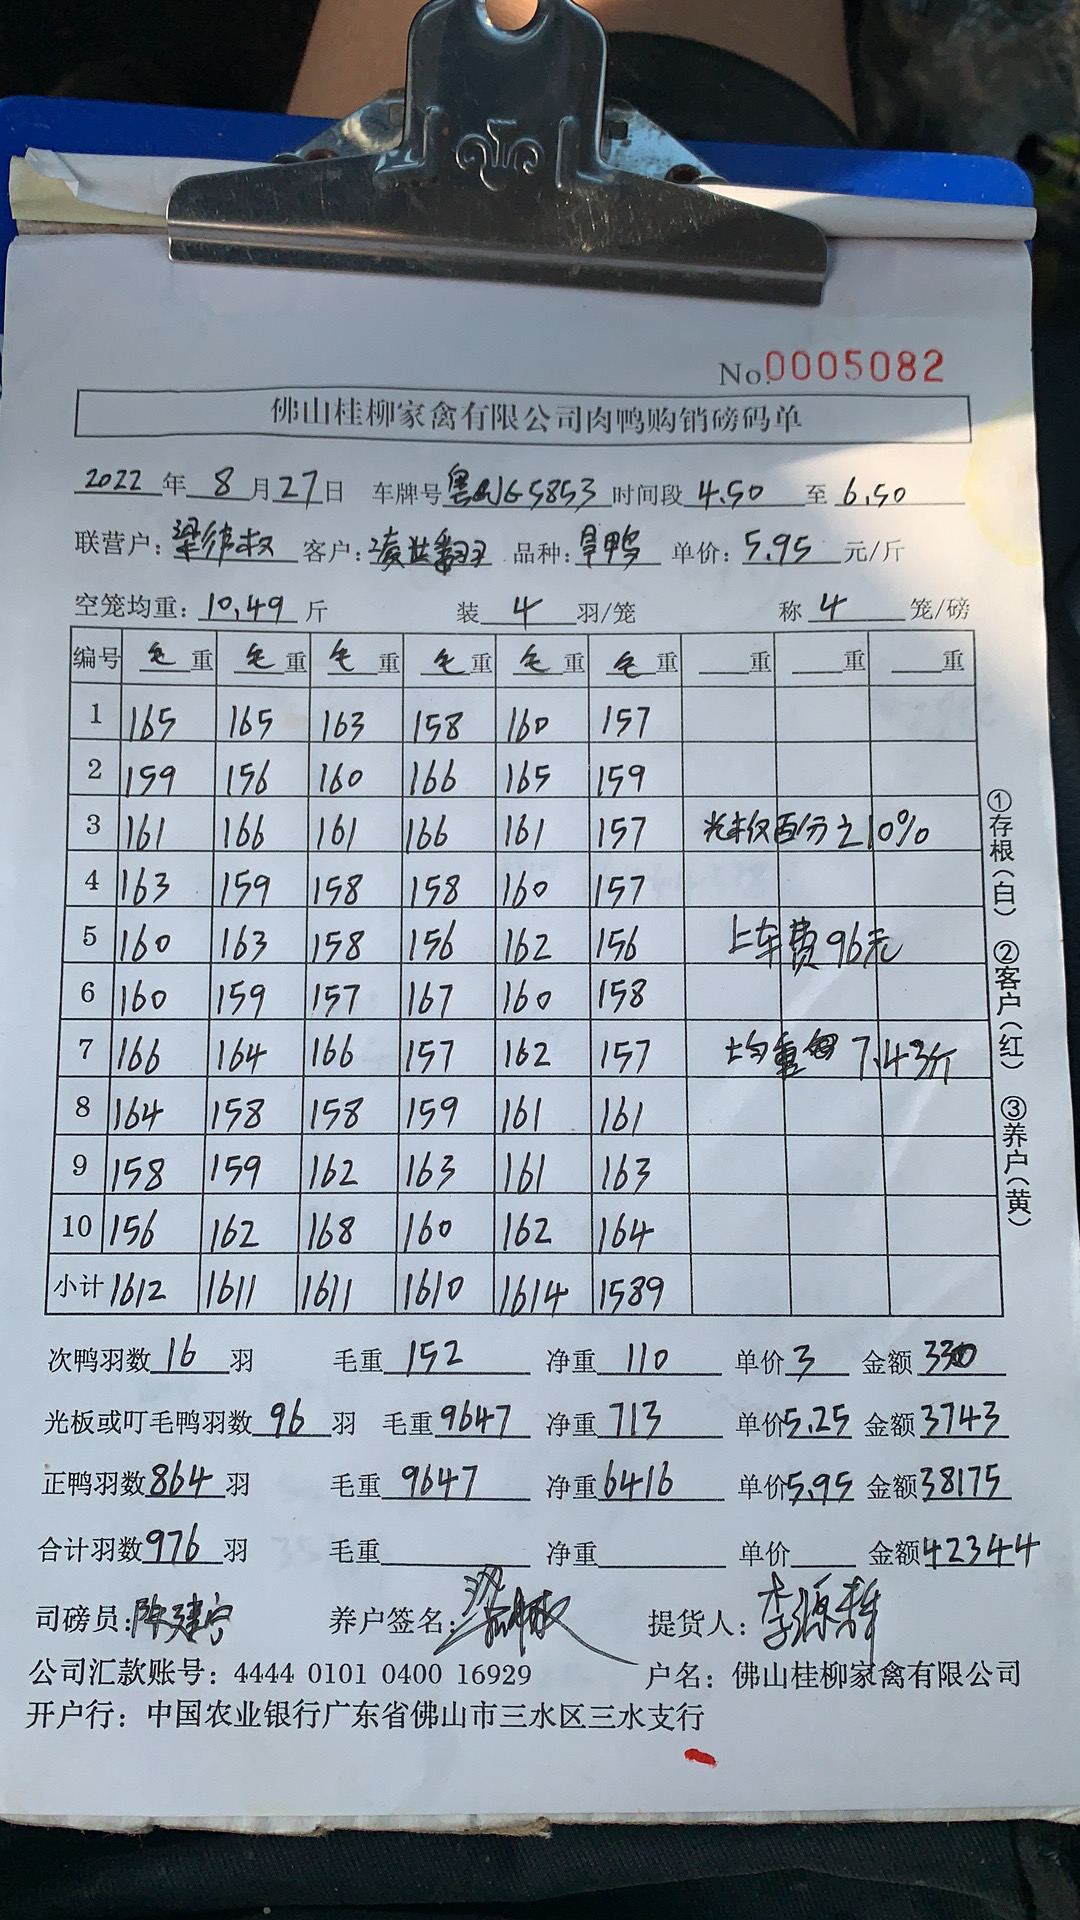 No.0005082
佛山桂柳家禽有限公司肉鸭购销磅码单
2022年8月27日 车牌号 粤 G5853 时间段 4.50 至 6.50
联营户: 梁 叔 客户: 凌世 品种: 旱鸭 单价: 5.95 元/斤
空笼均重: 10.49 斤 装 4 羽/笼 称 4 笼/磅
编号 毛重 毛重 毛重 毛重 毛重 毛重 重 重 重
1 165 165 163 158 160 157
2 159 156 160 166 165 159
3 161 166 161 166 161 157 光板百分之10%
4 163 159 158 158 160 157
5 160 163 158 156 162 156 上车费96元
6 160 159 157 167 160 158
7 166 164 166 157 162 157 均重 7.43斤
8 164 158 158 159 161 161
9 158 159 162 163 161 163
10 156 162 168 160 162 164
小计 1612 1611 1611 1610 1614 1589
次鸭羽数 16 羽 毛重 152 净重 110 单价 3 金额 330
光板或叮毛鸭羽数 96 羽 毛重 9647 净重 713 单价 5.25 金额 3743
正鸭羽数 864 羽 毛重 9647 净重 6416 单价 5.95 金额 38175
合计羽数 976 羽 毛重 净重 单价 金额 42344
司磅员: 陈建宁 养户签名: 梁 提货人: 李源
公司汇款账号: 4444 0101 0400 16929 户名: 佛山桂柳家禽有限公司
开户行: 中国农业银行广东省佛山市三水区三水支行
①存根(白) ②客户(红) ③养户(黄)